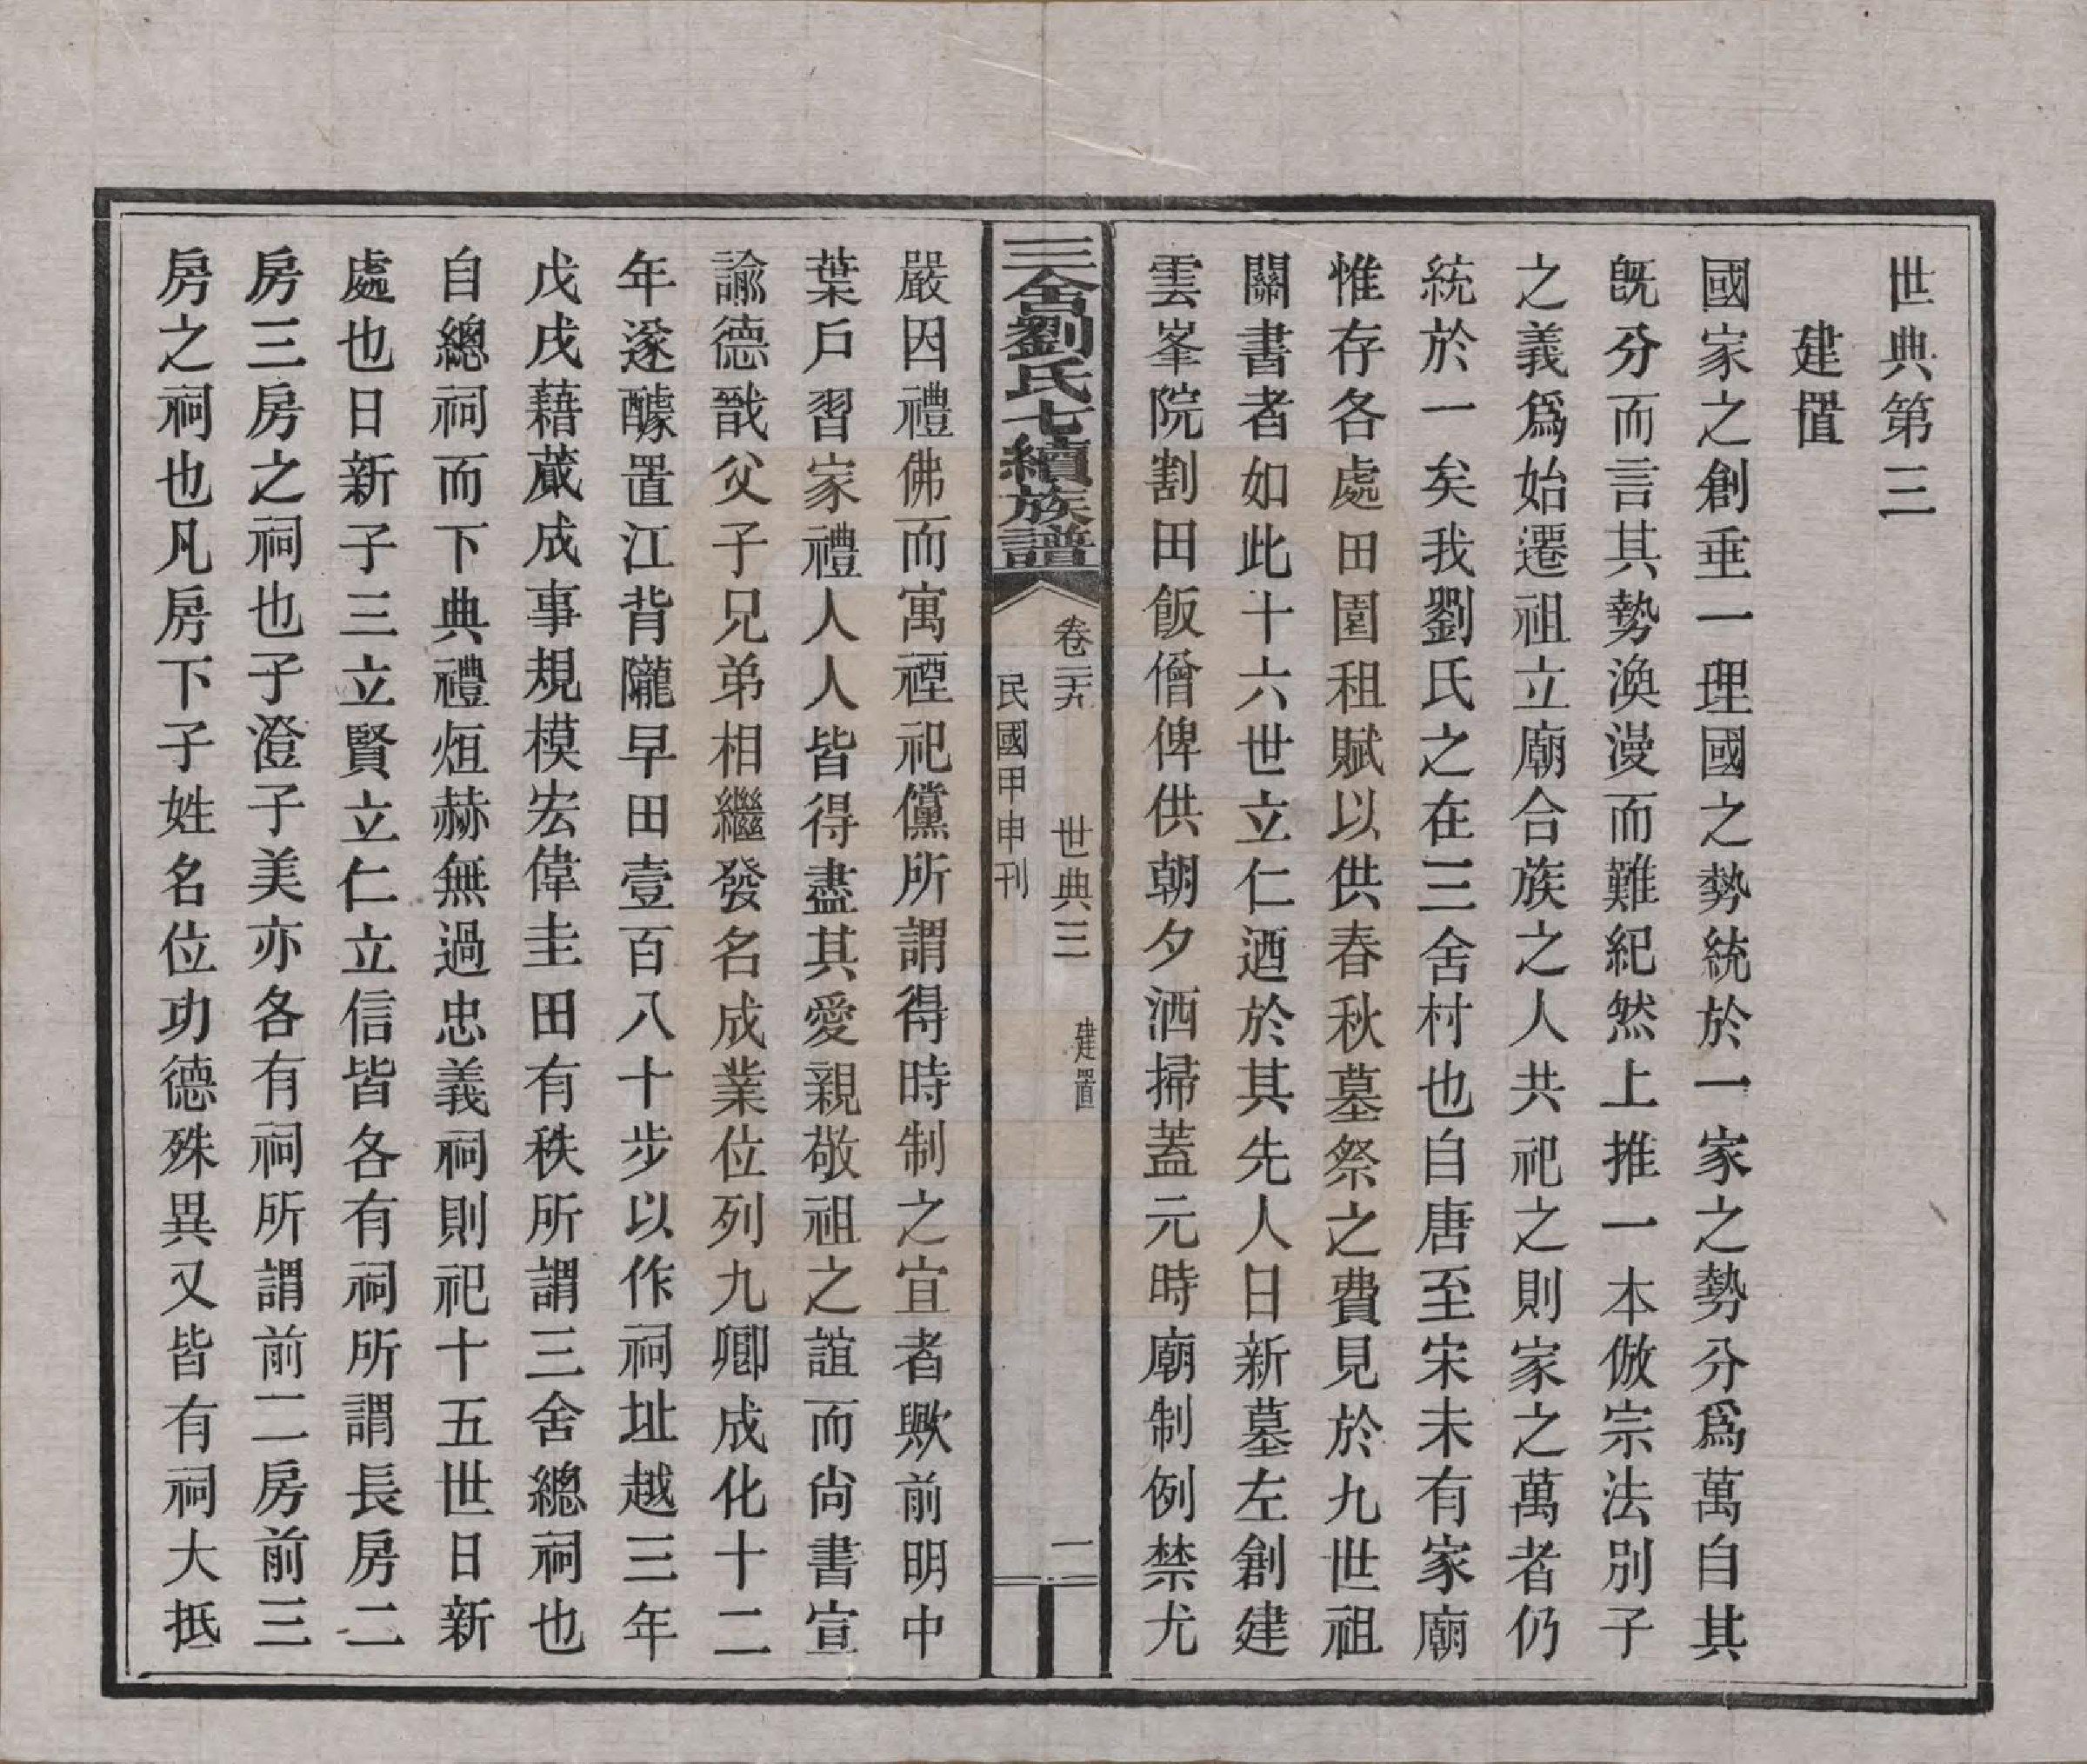 世典第三
建置
國家之創垂一理國之勢統於一家之勢分爲萬自其
旣分而言其勢渙漫而難紀然上推一本倣宗法別子
之義爲始遷祖立廟合族之人共祀之則家之萬者仍
統於一矣我劉氏之在三舍村也自唐至宋未有家廟
惟存各處田園租賦以供春秋墓祭之費見於九世祖
關書者如此十六世立仁迺於其先人日新墓左創建
雲峯院割田飯僧俾供朝夕洒掃蓋元時廟制例禁尤
三舍劉氏七續族譜
卷三十九
世典三
建置
二
民國甲申刊
嚴因禮佛而寓禋祀儻所謂得時制之宜者歟前明中
葉戶習家禮人人皆得盡其愛親敬祖之誼而尙書宣
諭德戩父子兄弟相繼發名成業位列九卿成化十二
年遂醵置江背隴早田壹百八十步以作祠址越三年
戊戌藉蕆成事規模宏偉圭田有秩所謂三舍總祠也
自總祠而下典禮烜赫無過忠義祠則祀十五世日新
處也日新子三立賢立仁立信皆各有祠所謂長房二
房三房之祠也子澄子美亦各有祠所謂前二房前三
房之祠也凡房下子姓名位功德殊異又皆有祠大抵